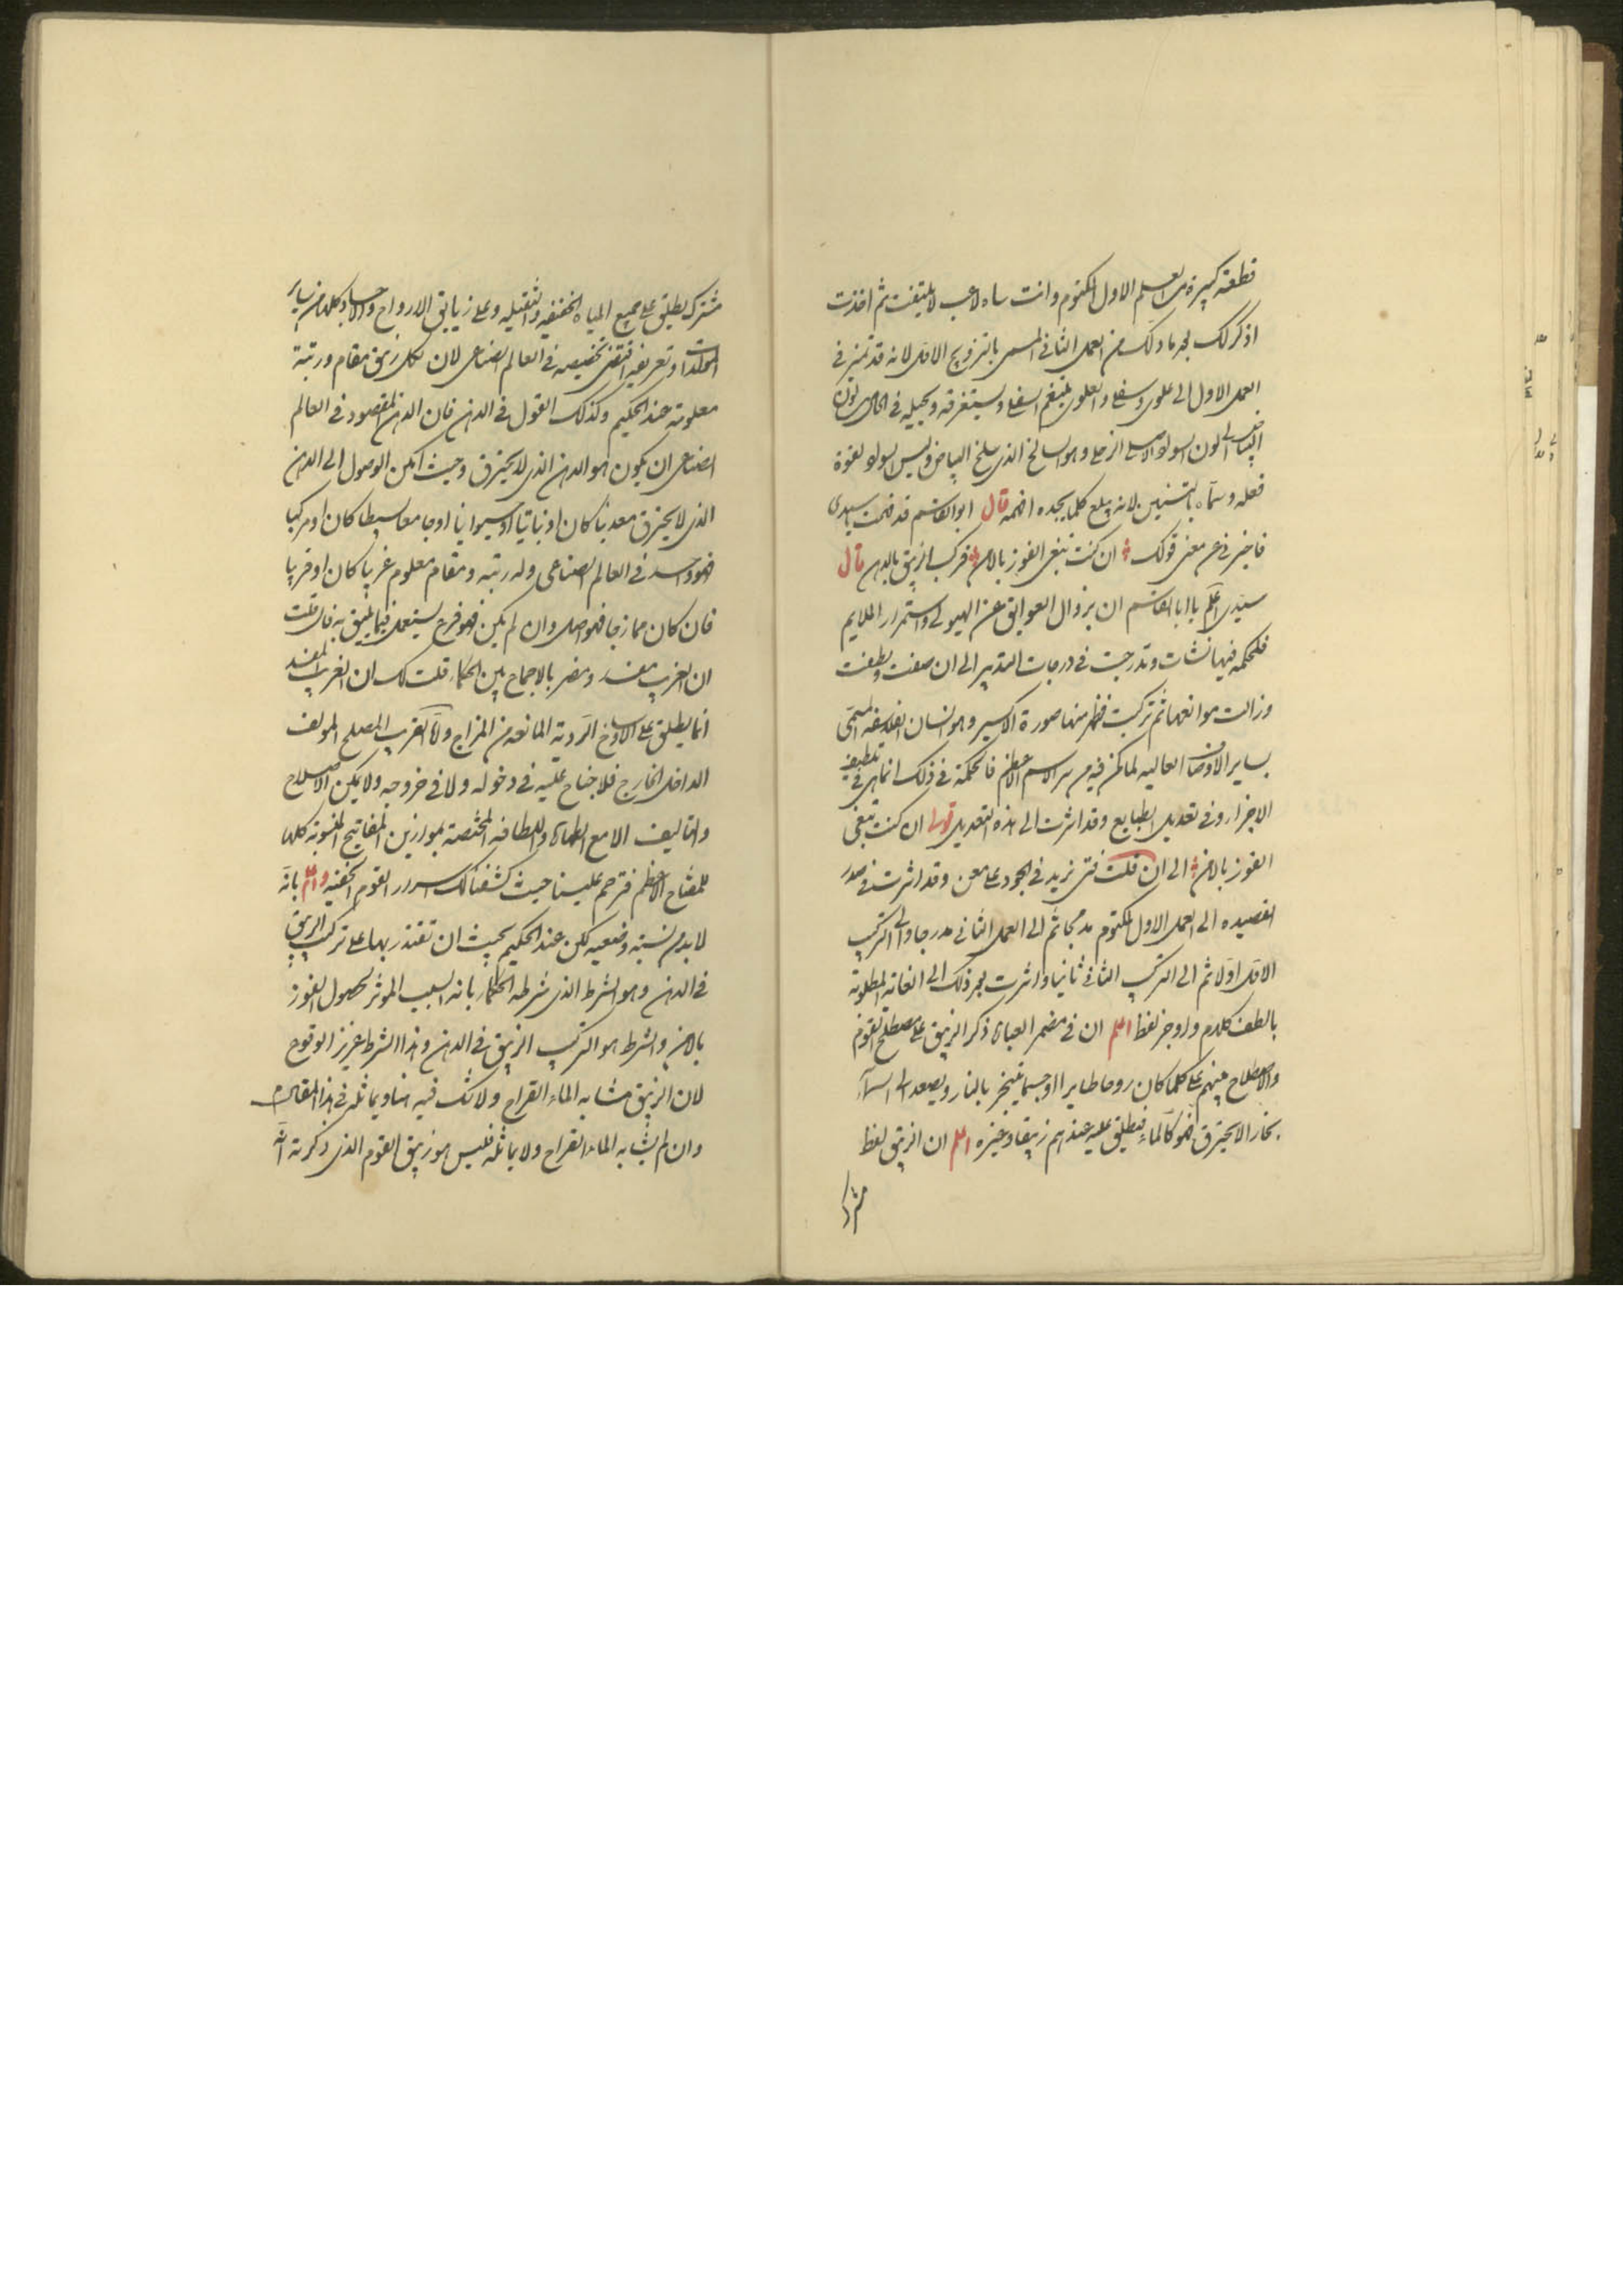 قطعة كبيرة من العلم الاول المكتوم وانت ساه لاعب لا تلتفت ثم اخذت
اذكر لك بعد ذلك من العمل الثاني المسمى بالتزويج الاول لانه قد تميز في
العمل الاول الى علوي وسفلي والعلوي يلتقم السفلي ويستغرقه ويحيله في الحال من لون
البياض الى لون السواد الاصلي الزحلي وهو السالخ الذي سلخ البياض ولبس السواد لقوة
فعله وسماه بالتنين لانه يبلع كلما يجده افهمه قال ابو القاسم قد فهمت يا سيدي
فاخبرني عن معنى قولك ان كنت تبغي الفوز بالامن فركب الزيبق بالدهن قال
سيدي اعلم يا ابا القاسم ان بزوال العوايق عن الهيولى واستمرار الملايم
فالحكمة فيها نشات وتدرجت في درجات التدبير الى ان صفت ولطفت
وزالت موانعها ثم تركبت فظهر منها صورة الاكسير وهو انسان الفلاسفة المسمى
بساير الاوصاف العاليه لما كمن فيه من سر الاسم الاعظم فالحكمة في ذلك انما هي في تلطيف
الاجزاء وفي تعديل الطبايع وقد اشرت الى هذه التعديل قولي ان كنت تبغي
الفوز بالامن الى ان قلت فتى يزيد في الجود على معن وقد اشرت في صدر
القصيده الى العمل الاول المكتوم مدمجا ثم الى العمل الثاني مدرجا والى التركيب
الاول اولا ثم الى التركيب الثاني ثانيا واشرت بعد ذلك الى الغاية المطلوبة
بالطف كلام واوجز لفظ اعلم ان في مضمر العبارة ذكر الزيبق على مصطلح القوم
والاصطلاح منهم على كلما كان روحا طايرا او جسما يتبخر بالنار ويصعد الى السماء
بخارا لا يحترق فهو كالماء فيطلق عليه عندهم زيبقا وغيره اعلم ان الزيبق لفظ
مشترك
مشترك يطلق على جميع المياه الخفيفه والثقيله وعلى زيابق الارواح والاجساد وكلها من ساير
المولدات وتعريفه اقتضى تخصيصه في العالم الصناعي لان لكل زيبق مقام ورتبة
معلومة عند الحكيم وكذلك القول في الدهن فان الدهن المقصود في العالم
الصناعي ان يكون هو الدهن الذي لا يحترق وحيث امكن الوصول الى الدهن
الذي لا يحترق معدنيا كان او نباتيا او حيوانيا او جامعا بسيطا كان او مركبا
فهو واحد في العالم الصناعي وله رتبه ومقام معلوم غريبا كان او قريبا
فان كان ممازجا فهو اصل وان لم يكن فهو فرع يستعمل فيما يليق به فان قلت
ان الغريب مفسد ومضر بالاجماع بين الحكماء قلت لك ان الغريب المفسد
انما يطلق على الاوساخ الردية المانعه من المزاج واما الغريب المصلح المولف
الداخل الخارج فلا جناح عليه في دخوله ولا في خروجه ولا يمكن الاصلاح
والتاليف الا مع الطهارة واللطافه المختصة بموازين المفاتيح المنسوبة كلها
للمفتاح الاعظم فترحم علينا حيث كشفنا لك اسرار القوم الخفيه واعلم بانه
لا بد من نسبة وضعيه تكن عند الحكيم بحيث ان تقتدر بها على تركيب الزيبق
في الدهن وهو الشرط الذي شرطه الحكماء بانه السبب الموثر لحصول الفوز
بالامن والشرط هو التركيب الزيبق في الدهن وهذا الشرط عزيز الوقوع
لان الزيبق مشابه الماء القراح ولا شك فيه هنا ويماثله في هذا المقام
وان لم يشابه الماء القراح ولا يماثله فليس هو زيبق القوم الذي ذكرته انه